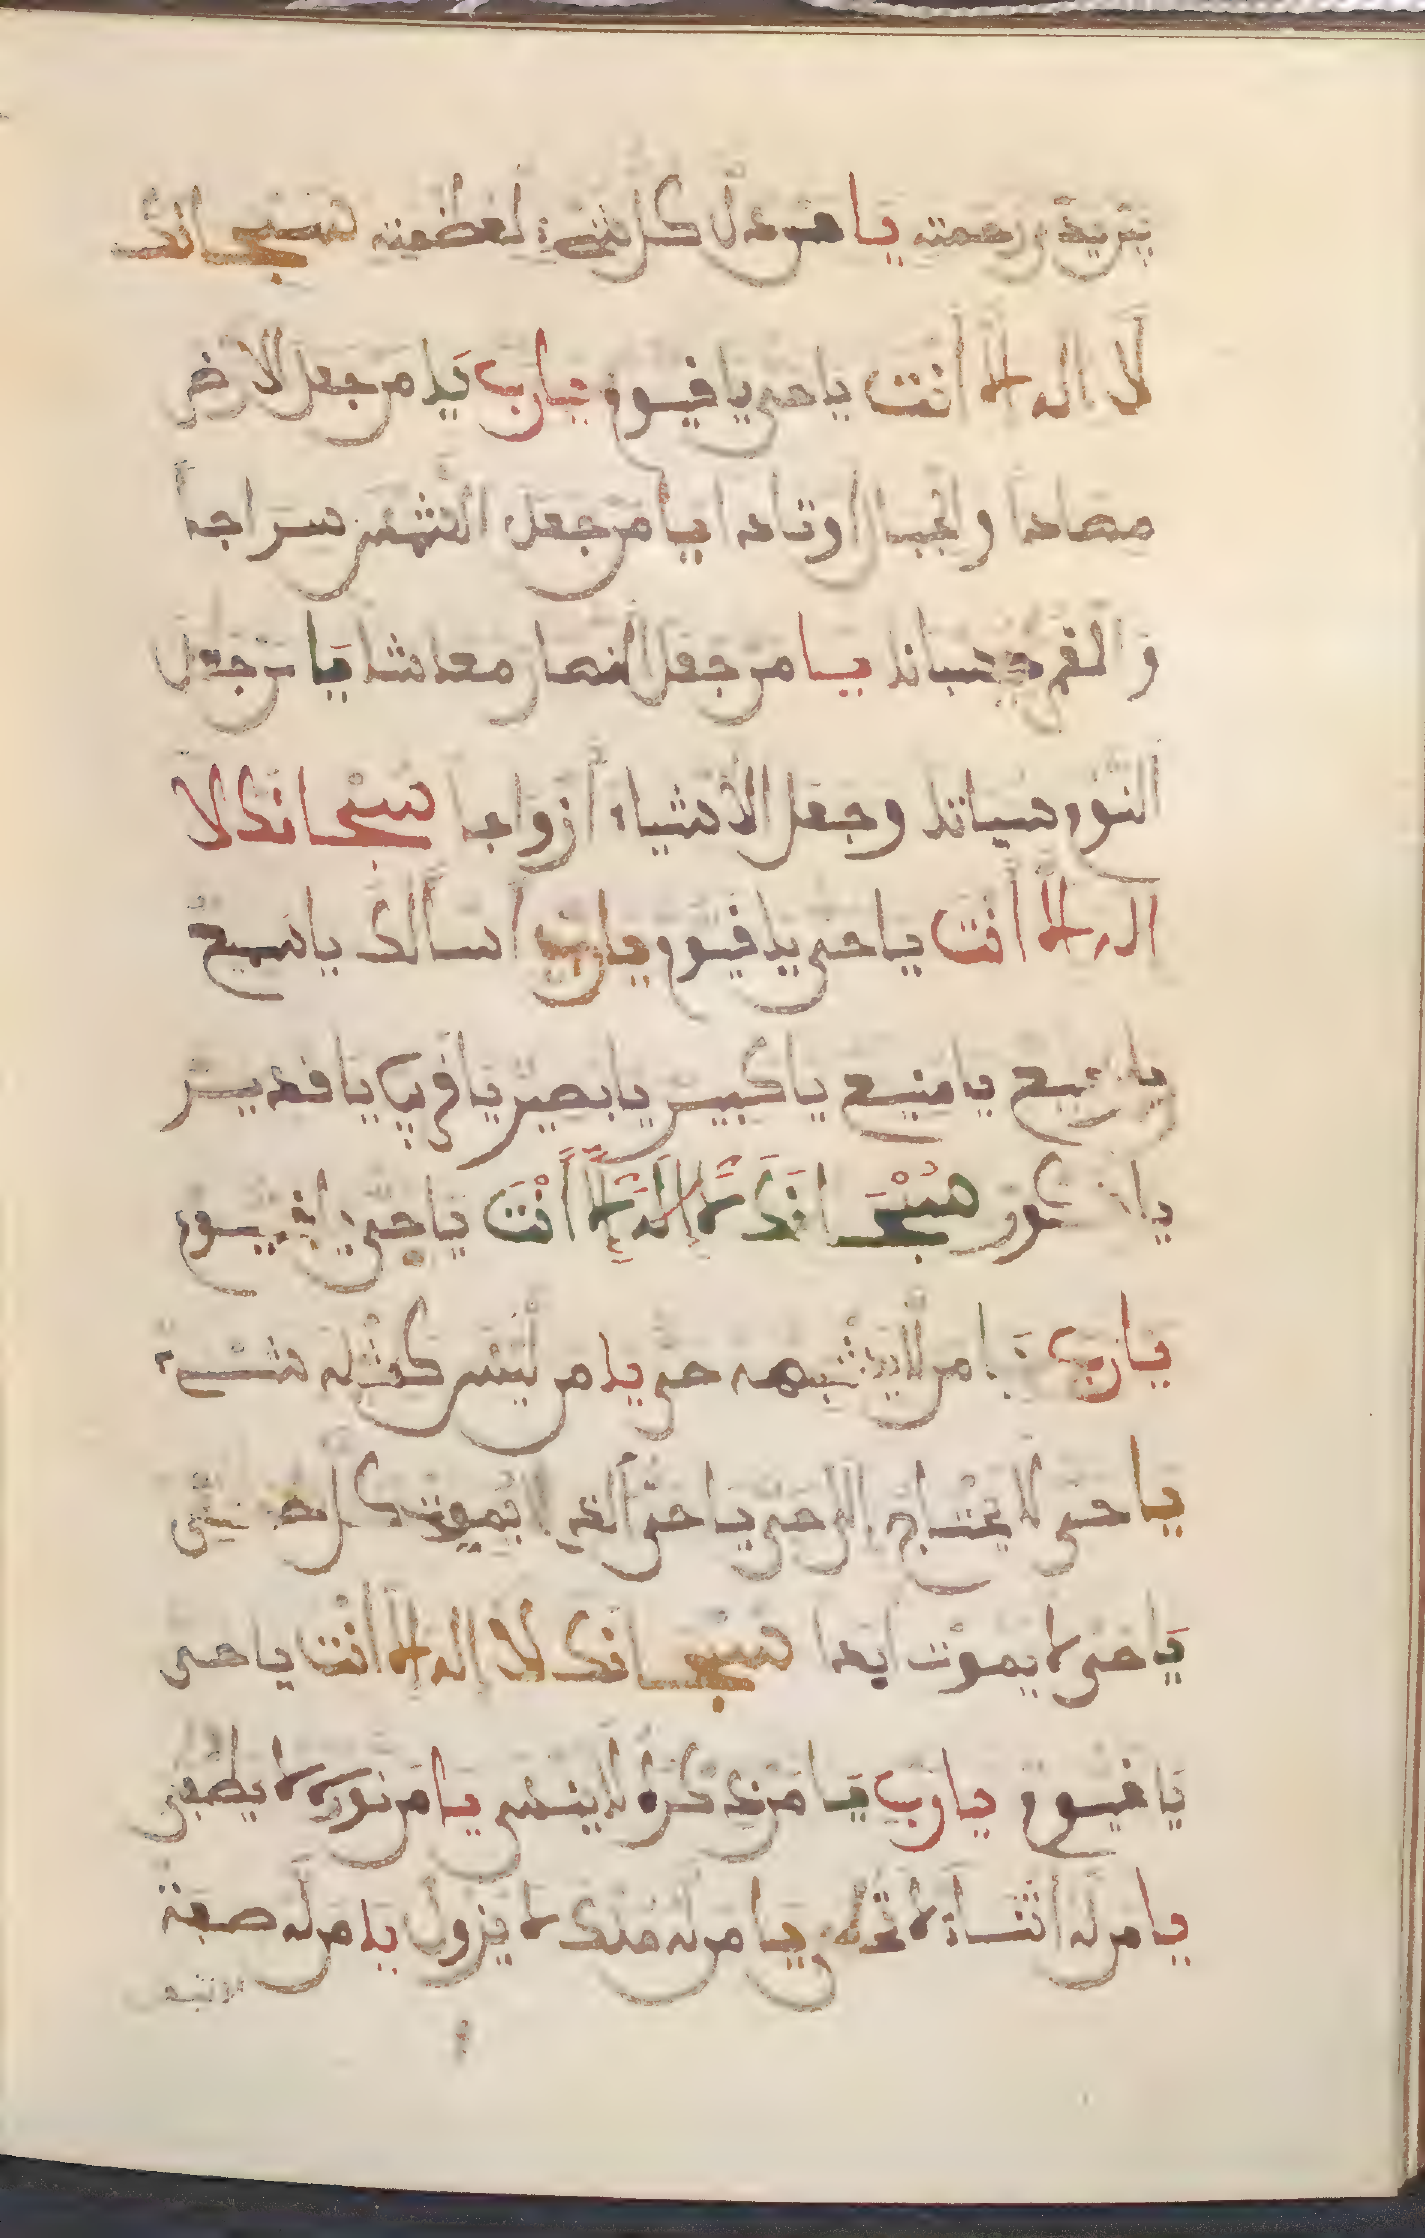 يدي رحمته يا من ذل كل شيء لعظمته سبحانك
لا اله الا انت يا حي يا قيوم يا رب يا من جعل الارض
مهادا والجبال اوتادا يا من جعل الشمس سراجا
والقمر حسبانا يا من جعل النهار معاشا يا من جعل
النوم سباتا وجعل الاشياء أزواجا سبحانك لا
اله الا أنت يا حي يا قيوم يا رب اسألك يا سميع
يا منيع يا كبير يا بصير يا قريب يا قدير
يا شكور سبحانك لا إله إلا أنت يا حي يا قيوم
يا رب يا من لا يشبهه حي يا من ليس كمثله شيء
يا حي لا يحتاج الى حي يا حي الذي لا يموت كل حي
يا حي لا يموت ابدا سبحانك لا اله الا انت يا حي
يا قيوم يا رب يا من ذكره لا ينسى يا من نوره لا يطفى
يا من له ثناء لا يا من له ملك لا يزول يا من له صفة
لا تبدل